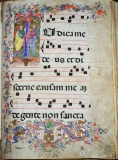 Iudica me
de us et di
scerne causam me am
de gente non sancta